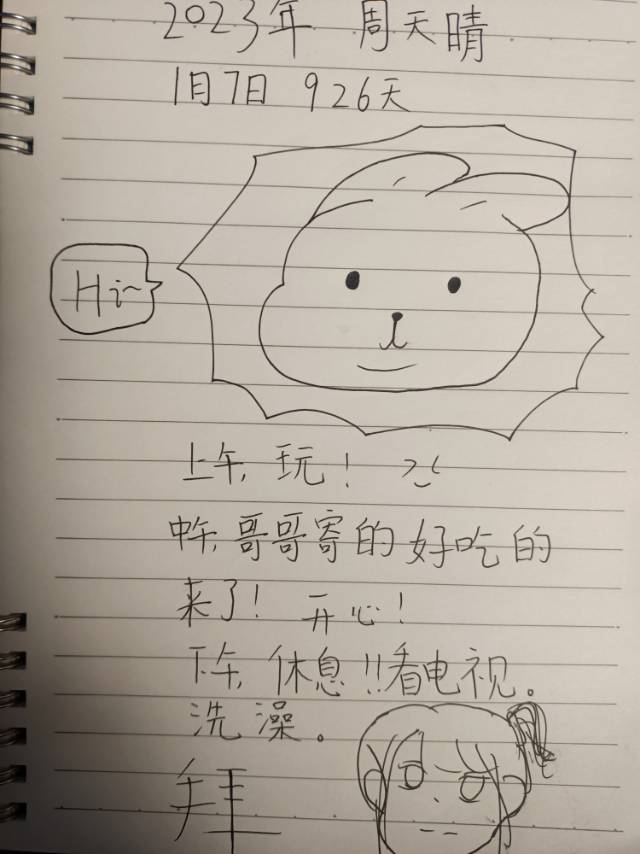 2023年 周天晴
1月7日 926天
Hi~
上午,玩!
中午,哥哥寄的好吃的
来了!开心!
下午,休息!!看电视。
洗澡。
拜